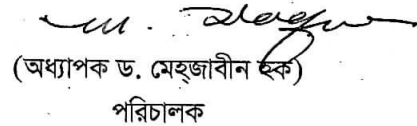 (অধ্যাপক ড. মেহ্জাবীন হক)
পরিচালক